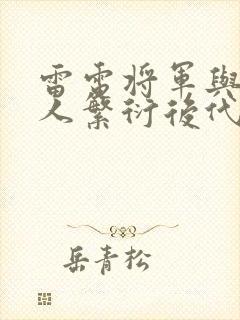 雷電将軍與
人繁衍後代
岳青松